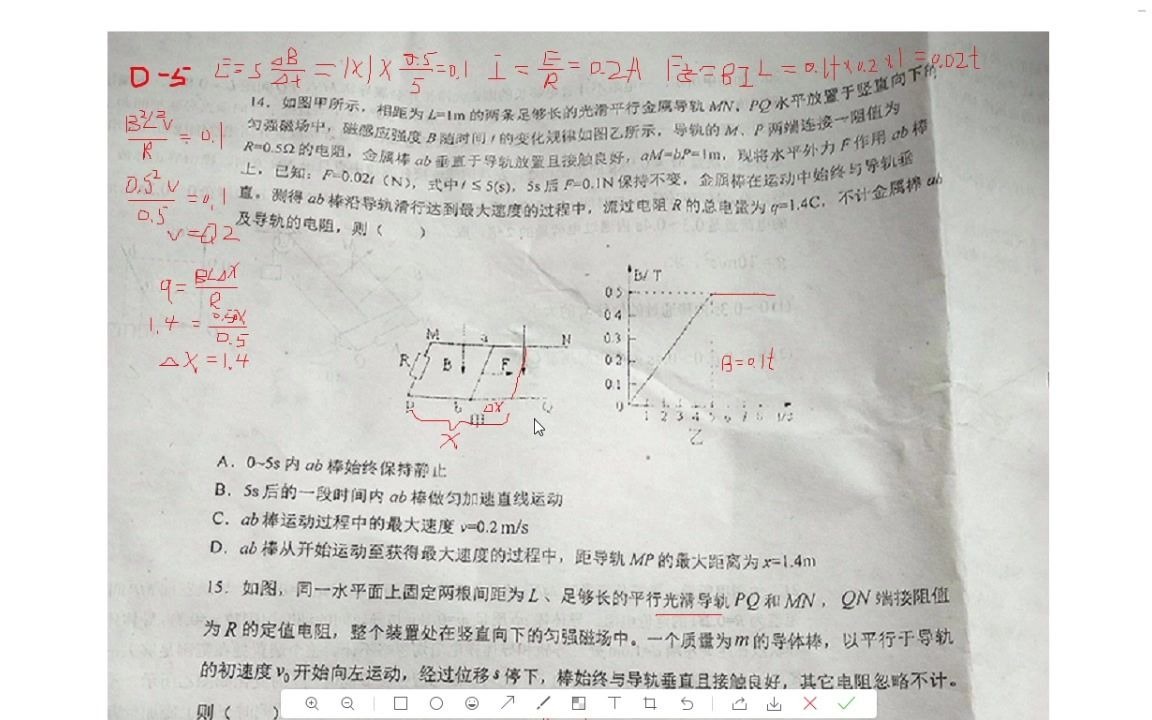 0-5 E=S ΔB/Δt =1×1× 0.5/5 =0.1 I= E/R =0.2A F安=BIL=0.1t×0.2×1=0.02t
14. 如图甲所示，相距为 L=1m 的两条足够长的光滑平行金属导轨 MN、PQ 水平放置于竖直向下的
匀强磁场中，磁感应强度 B 随时间 t 的变化规律如图乙所示，导轨的 M、P 两端连接一阻值为
R=0.5Ω 的电阻，金属棒 ab 垂直于导轨放置且接触良好，aM=bP=1m，现将水平外力 F 作用 ab 棒
上，已知：F=0.02t（N），式中 t ≤ 5(s)，5s 后 F=0.1N 保持不变，金属棒在运动中始终与导轨垂
直。测得 ab 棒沿导轨滑行达到最大速度的过程中，流过电阻 R 的总电量为 q=1.4C，不计金属棒 ab
及导轨的电阻，则（ ）
B²L²v/R =0.1
0.5²v/0.5 =0.1
v=0.2
q= BLΔX/R
1.4= 0.5ΔX/0.5
ΔX=1.4
M a N
R B F
P b ΔX Q
甲
X
B/ T
0.5
0.4
0.3
0.2
0.1
0
1 2 3 4 5 6 7 8 t/s
乙
B=0.1t
A. 0~5s 内 ab 棒始终保持静止
B. 5s 后的一段时间内 ab 棒做匀加速直线运动
C. ab 棒运动过程中的最大速度 v=0.2 m/s
D. ab 棒从开始运动至获得最大速度的过程中，距导轨 MP 的最大距离为 x=1.4m
15. 如图，同一水平面上固定两根间距为 L、足够长的平行光滑导轨 PQ 和 MN，QN 端接阻值
为 R 的定值电阻，整个装置处在竖直向下的匀强磁场中。一个质量为 m 的导体棒，以平行于导轨
的初速度 v₀ 开始向左运动，经过位移 s 停下，棒始终与导轨垂直且接触良好，其它电阻忽略不计。
则（ ）